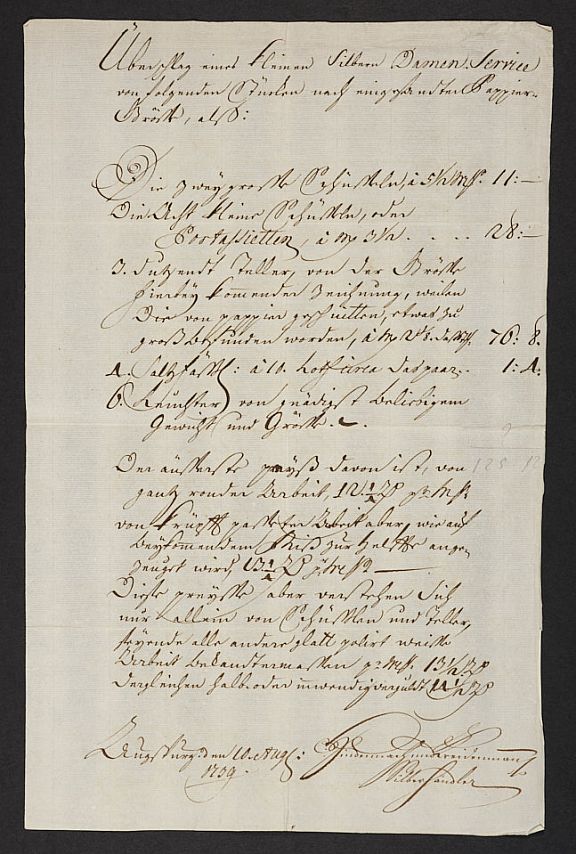 Überschlag eines kleinen Silbern Damen Service
von folgenden Stücken nach eingesandter Pappier-
Grösse, als:
Die zwey grosse Schüsseln, à 5½ Mk. 11:—
Die Acht kleine Schüsseln, oder
Portassietten, à Mk 3½ . . . . 28:—
3. dutzendt Teller, von der Grösse
hierbey kommender Zeichnung, weilen
die von pappier geschnitten, etwas zu
groß befunden worden, à Mk 76. 8.
4. Saltzfässl: à 10. Loth circa das paar . . 1: 4:
6. Leuchter von gnädigst beliebigem
Gewicht und Grösse.
Der äusserste preyß davon ist, von
125 12
gantz ronder Arbeit, 12 pr Mk
von Arbeit aber, wie auf
beykommendem Riß zur helffte ange-
zeuget wird, 13 pr Mk —
Diese preysse aber verstehen sich
nur allein von Schüsslen und Teller,
seyende alle andere glatt polirt weisse
Arbeit bekandtermassen pr Mk. 13½
dergleichen halb oder inwendig verguldt 14½
Augsburg: den 10. Aug:
1739.
Silberhändler